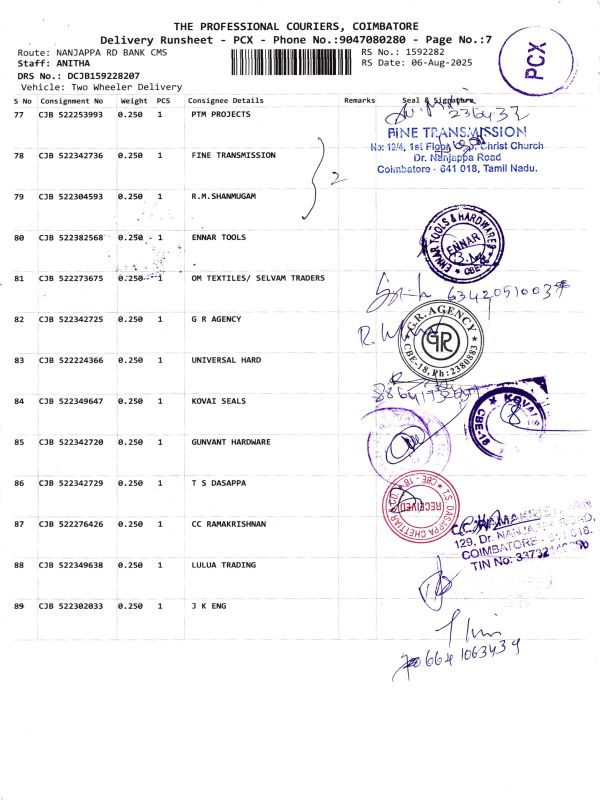 THE PROFESSIONAL COURIERS, COIMBATORE
Delivery Runsheet - PCX - Phone No.:9047080280 - Page No.:7
Route: NANJAPPA RD BANK CMS
RS No.: 1592282
Staff: ANITHA
RS Date: 06-Aug-2025
DRS No.: DCJB159228207
Vehicle: Two Wheeler Delivery
PCX
S No Consignment No Weight PCS Consignee Details Remarks Seal & Signature
77 CJB 522253993 0.250 1 PTM PROJECTS
236437
78 CJB 522342736 0.250 1 FINE TRANSMISSION
FINE TRANSMISSION
No: 10/4, 1st Floor, Christ Church
Dr. Nanjappa Road
Coimbatore - 641 018, Tamil Nadu.
2
79 CJB 522304593 0.250 1 R.M.SHANMUGAM
80 CJB 522382568 0.250 1 ENNAR TOOLS
ENNAR TOOLS & HARDWARES
ENNAR
CBE-18
81 CJB 522273675 0.250 1 OM TEXTILES/ SELVAM TRADERS
82 CJB 522342725 0.250 1 G R AGENCY
G.R. AGENCY
GR
CBE-18, Ph: 2380883
83 CJB 522224366 0.250 1 UNIVERSAL HARD
84 CJB 522349647 0.250 1 KOVAI SEALS
KOVAI
CBE-18
85 CJB 522342720 0.250 1 GUNVANT HARDWARE
86 CJB 522342729 0.250 1 T S DASAPPA
T.S. DASAPPA CHETTIAR
RECEIVED
CBE - 18
87 CJB 522276426 0.250 1 CC RAMAKRISHNAN
129, Dr. NANJAPPA ROAD,
COIMBATORE - 641 018.
TIN No: 33732
88 CJB 522349638 0.250 1 LULUA TRADING
89 CJB 522302033 0.250 1 J K ENG